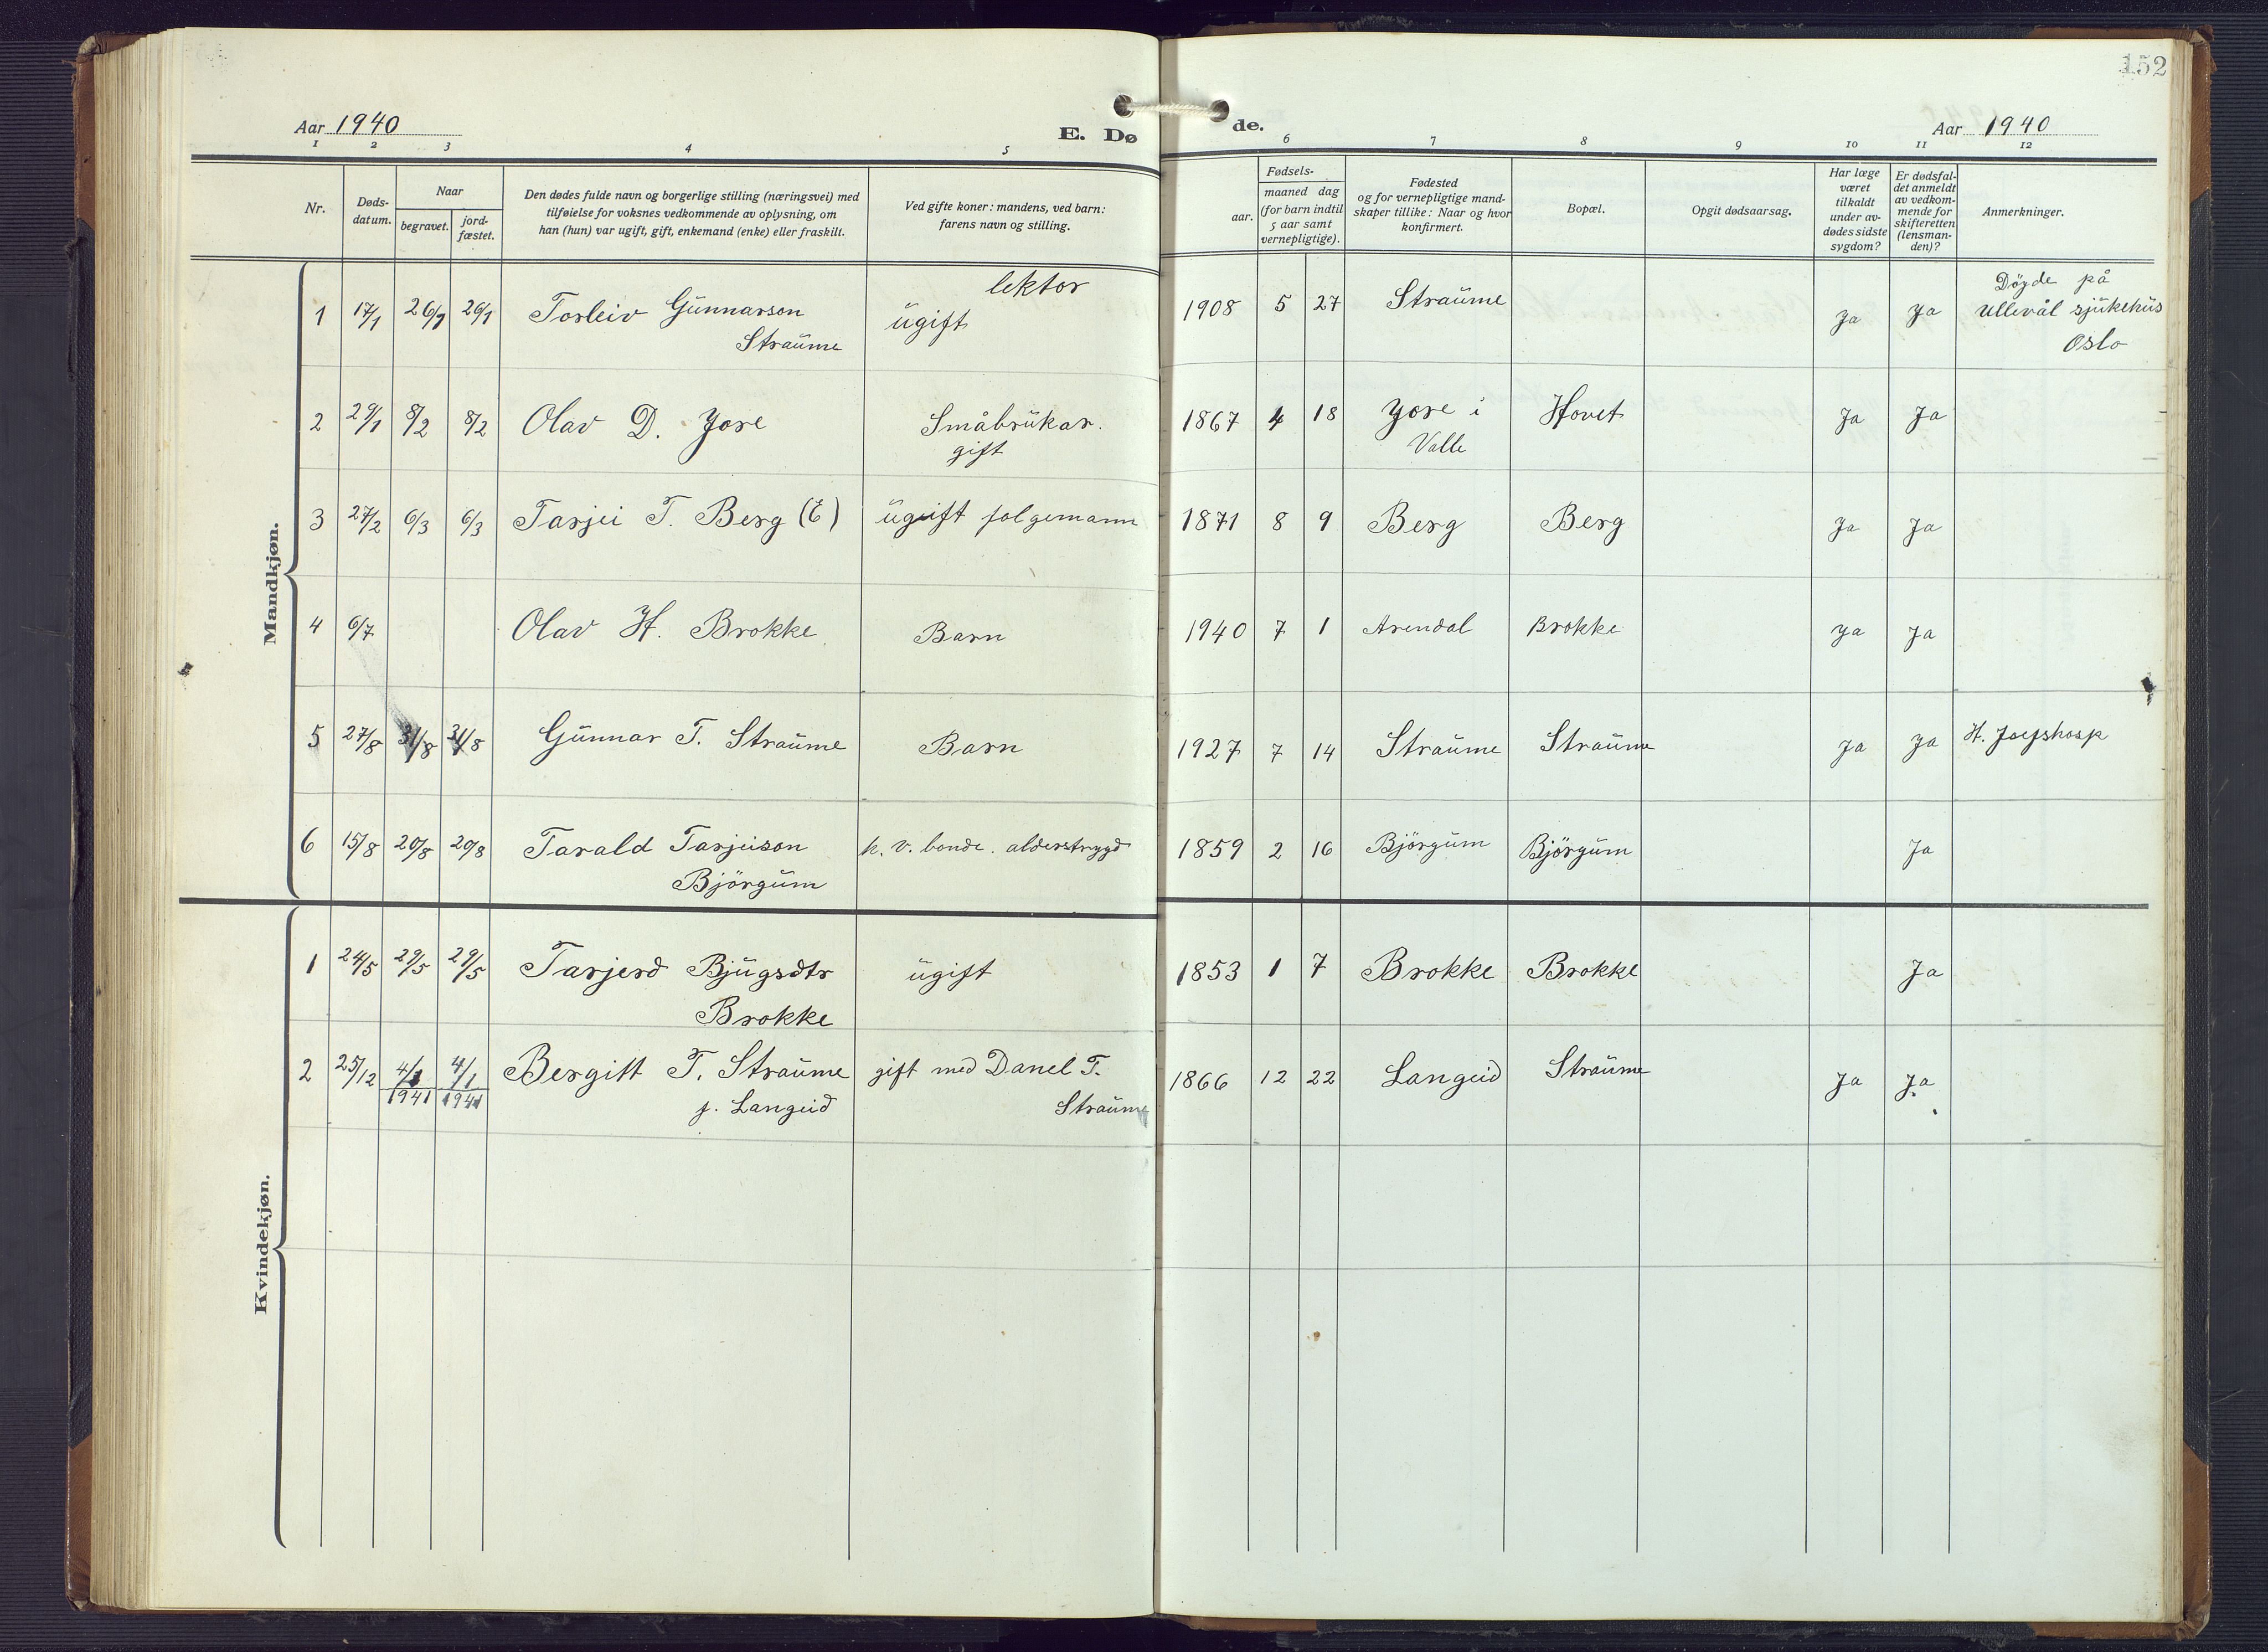 152
Aar 1940
E. Dø
de.
Aar 1940
1 2 3 4 5 6 7 8 9 10 11 12
Nr.
Døds-
datum.
Naar
begravet.
jord-
fæstet.
Den dødes fulde navn og borgerlige stilling (næringsvei) med
tilføielse for voksnes vedkommende av oplysning, om
han (hun) var ugift, gift, enkemand (enke) eller fraskilt.
Ved gifte koner: mandens, ved barn:
farens navn og stilling.
Fødsels-
aar.
maaned dag
(for barn indtil
5 aar samt
vernepligtige).
Fødested
og for vernepligtige mand-
skaper tillike: Naar og hvor
konfirmert.
Bopæl.
Opgit dødsaarsag.
Har læge
været
tilkaldt
under av-
dødes sidste
sygdom?
Er dødsfal-
det anmeldt
av vedkom-
mende for
skifteretten
(lensman-
den)?
Anmerkninger.
Mandkjøn.
lektor Døyde på
1 17/1 26/1 26/1 Torleiv Gunnarson ugift 1908 5 27 Straume Ja Ja Ullevål sjukehus
Straume Oslo
2 29/1 8/2 8/2 Olav D. Jore Småbrukar. 1867 4 18 Jore i Hovet Ja Ja
gift Valle
3 27/2 6/3 6/3 Tarjei T. Berg (E) ugift folgemann 1871 8 9 Berg Berg Ja Ja
4 6/7 Olav H. Brokke Barn 1940 7 1 Arendal Brokke Ja Ja
5 27/8 31/8 31/8 Gunnar T. Straume Barn 1927 7 14 Straume Straume Ja Ja H.
6 15/8 20/8 20/8 Tarald Tarjeison k. v. bonde. alderstrygd 1859 2 16 Björgum Björgum Ja
Björgum
Kvindekjøn.
1 24/5 29/5 29/5 Tarjerd Bjugsdtr ugift 1853 1 7 Brokke Brokke Ja
Brokke
2 25/12 4/1 4/1 Bergitt T. Straume gift med Danel T. 1866 12 22 Langeid Straume Ja Ja
1941 1941 f. Langeid Straume